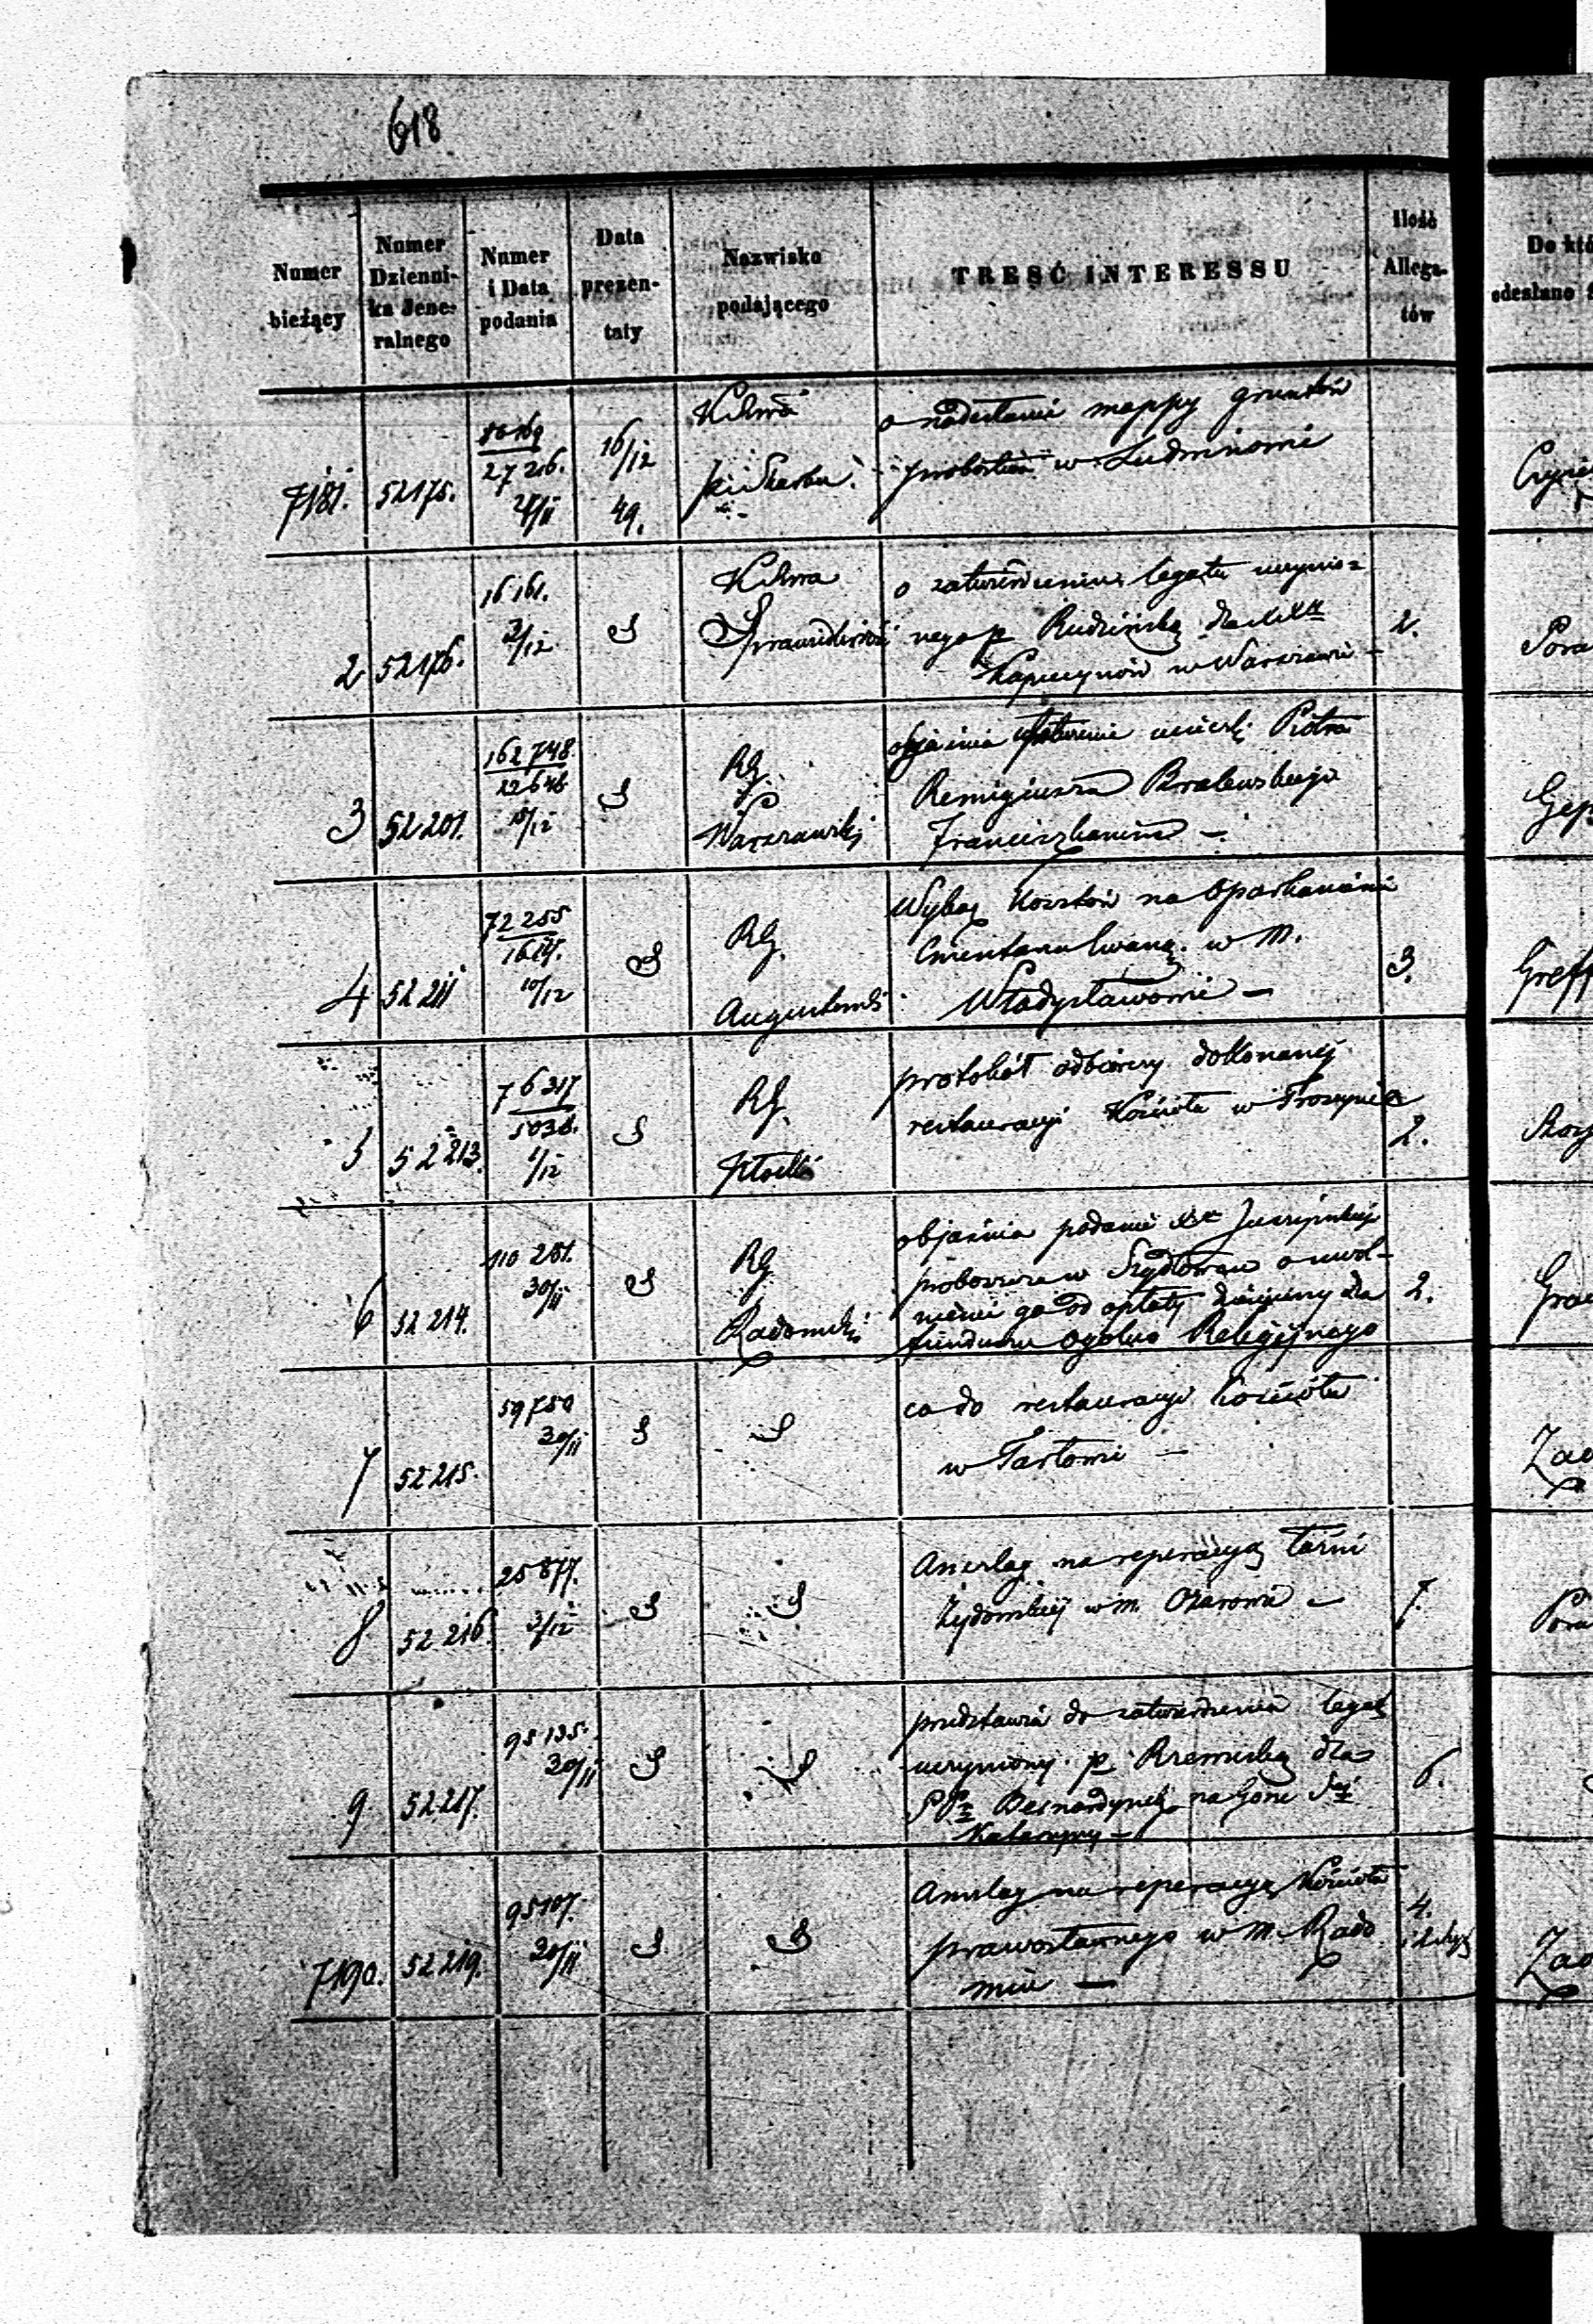 618
Numer bieżący
Numer Dzienni- ka Jene- ralnego
Numer i Data podania
Data prezen- taty
Nazwisko podającego
TREŚĆ INTERESSU
Ilość Allega- tów
Do któ
odesłano
7181. 52175.
27216.
16/12 49.
Skarbu.
o nadesłanie mappy gruntów
w Ludwinowie
2 52176.
16161.
2/12
S
Sprawiedliwość
o zatwierdzeniu legatu uczynio=
nego p Rudzińską dla XX
Kapucynów w Warszawie -
2.
3 52201.
162748.
22646
15/12
S
RG.
Warszawski
objaśnia ucieczki Piotra
Remigiusza
Franciszkanina -
4 52211
72255
10/12
S
RG.
Augustowski
Wykaz kosztów na oparkanienie
Cmentarza Ewang. w M.
Władysławowie -
3.
Greff
5 52213.
76317
5038.
1/12
S
RG.
Płocki
protokół odbiorczy dokonanej
restauracyi Kościoła w
2.
6 52214.
110281.
30/11
S
RG
Radomski
objaśnia podanie
proboszcza w Szydłowcu o uwol-
nienie go od opłaty dziesięciny dla
funduszu ogólno Religijnego
2.
7 52215.
59750
30/11
S
S
co do restauracyi kościoła
w Tarłowie -
Zao
8 52216.
25877.
3/12
S
S
Anszlag na reperacyą łaźni
Żydowskiej w m. Ożarowie -
7.
9 52217.
95135.
30/11
S
S
przedstawia do zatwierdzenia legat
uczyniony p. dla
PP Bernardynek na Górze Stej
Katarzyny -
6.
7190. 52219.
95107.
30/11
S
S
Anszlag na reperacyą Kościoła
prawosławnego w m. Rado
miu -
4.
Zao